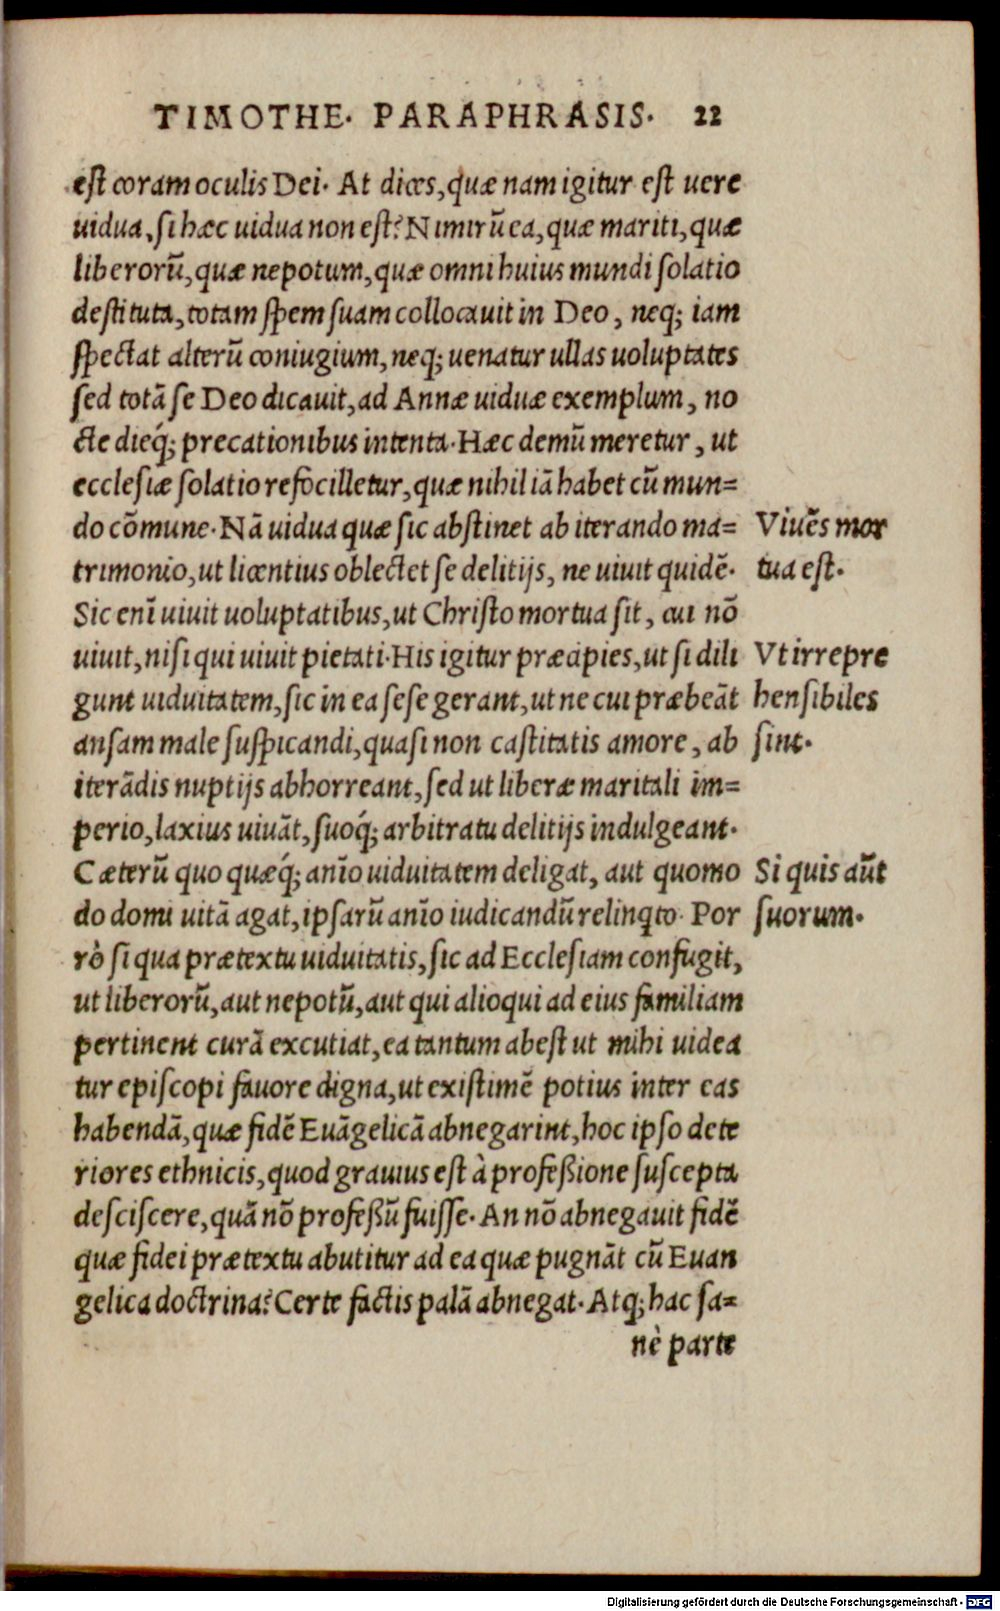 TIMOTHE· PARAPHRASIS· 22
est coram oculis Dei· At dices, quæ nam igitur est uere
uidua, si hæc uidua non est? Nimirũ ea, quæ mariti, quæ
liberorũ, quæ nepotum, quæ omni huius mundi solatio
destituta, totam spem suam collocauit in Deo, neq; iam
spectat alterũ coniugium, neq; uenatur ullas uoluptates
sed totã se Deo dicauit, ad Annæ uiduæ exemplum, no
cte dieq́; precationibus intenta· Hæc demũ meretur, ut
ecclesiæ solatio refocilletur, quæ nihil iã habet cũ mun=
do cõmune· Nã uidua quæ sic abstinet ab iterando ma=
trimonio, ut licentius oblectet se delitijs, ne uiuit quidẽ·
Sic enĩ uiuit uoluptatibus, ut Christo mortua sit, cui nõ
uiuit, nisi qui uiuit pietati· His igitur præcipies, ut si dili
gunt uiduitatem, sic in ea sese gerant, ut ne cui præbeãt
ansam male suspicandi, quasi non castitatis amore, ab
iterãdis nuptijs abhorreant, sed ut liberæ maritali im=
perio, laxius uiuãt, suoq́; arbitratu delitijs indulgeant·
Cæterũ quo quæq́; anĩo uiduitatem deligat, aut quomo
do domi uitã agat, ipsarũ anĩo iudicandũ relinqto· Por
rò si qua prætextu uiduitatis, sic ad Ecclesiam confugit,
ut liberorũ, aut nepotũ, aut qui alioqui ad eius familiam
pertinent curã excutiat, ea tantum abest ut mihi uidea
tur episcopi fauore digna, ut existimẽ potius inter eas
habendã, quæ fidẽ Euãgelicã abnegarint, hoc ipso dete
riores ethnicis, quod grauius est à profeßione suscepta
desciscere, quã nõ profeßũ fuisse· An nõ abnegauit fidẽ
quæ fidei prætextu abutitur ad ea quæ pugnãt cũ Euan
gelica doctrina? Certe factis palã abnegat· Atq; hac sa=
nè parte
Viuẽs mor
tua est·
Vt irrepre
hensibiles
sint·
Si quis aũt
suorum·
Digitalisierung gefördert durch die Deutsche Forschungsgemeinschaft - DFG